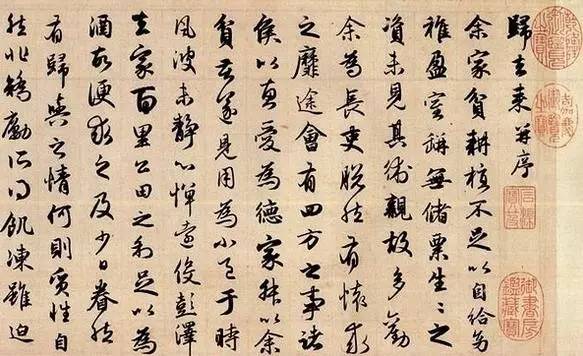 歸去来并序
余家貧耕植不足以自給幼
稚盈室缾無儲粟生生之
資未見其術親故多勸
余為長吏脱然有懷求
之靡途會有四方之事諸
侯以惠愛為德家叔以余
貧苦遂見用為小邑于時
風波未静心憚遠役彭澤
去家百里公田之利足以為
酒故便求之及少日眷然
有歸與之情何則質性自
然非矯勵所得飢凍雖迫
嘉慶御覽之寶
石渠寶笈
御書房鑑藏寶